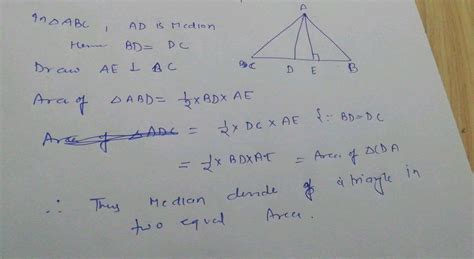 In △ABC, AD is Median
Hence BD = DC
Draw AE ⊥ BC
Area of △ABD = 1/2 × BD × AE
Area of △ADC = 1/2 × DC × AE {∵ BD = DC
= 1/2 × BD × AE = Area of △CDA
∴ Thus Median devide of a triangle in
two equal Area.
A
C D E B